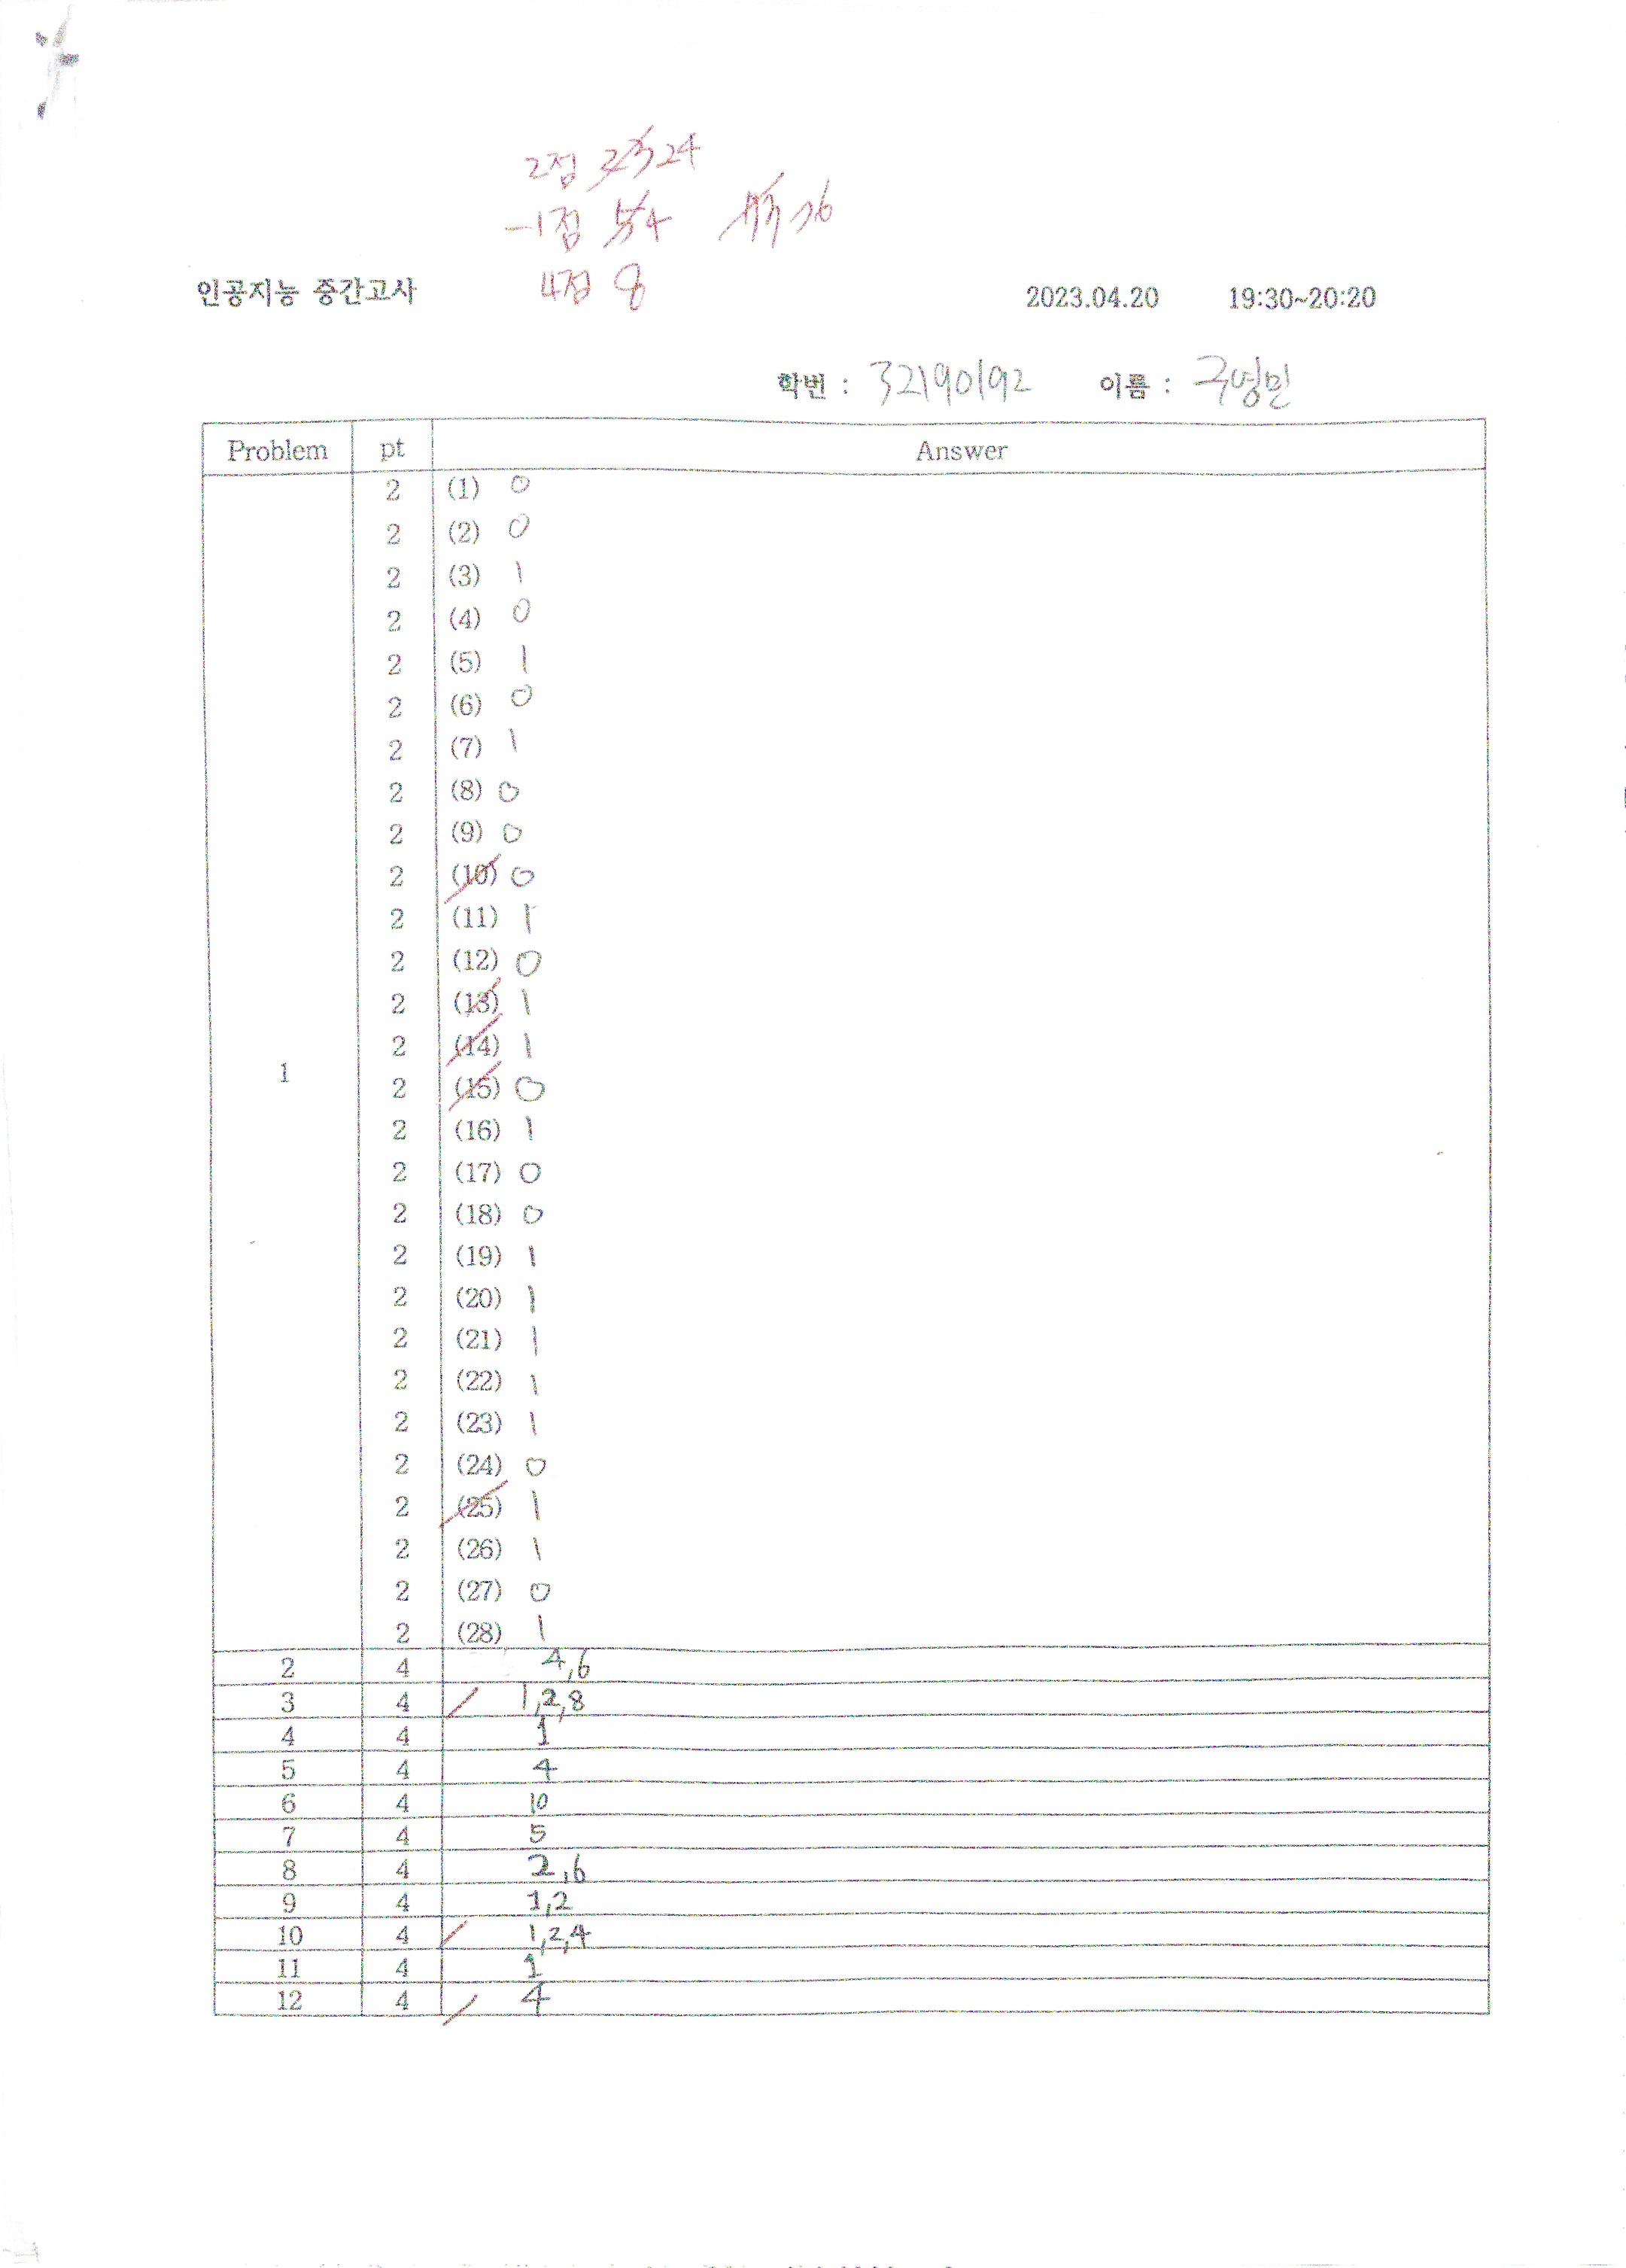 2점 23 24
-1점 5 4 76
4점 8
인공지능 중간고사 2023.04.20 19:30~20:20
학번 : 32190192 이름 : 구영민
Problem pt Answer
2 (1) 0
2 (2) 0
2 (3) 1
2 (4) 0
2 (5) 1
2 (6) 0
2 (7) 1
2 (8) 0
2 (9) 0
2 (10) 0
2 (11) 1
2 (12) 0
2 (13) 1
2 (14) 1
1 2 (15) 0
2 (16) 1
2 (17) 0
2 (18) 0
2 (19) 1
2 (20) 1
2 (21) 1
2 (22) 1
2 (23) 1
2 (24) 0
2 (25) 1
2 (26) 1
2 (27) 0
2 (28) 1
2 4 4,6
3 4 1,2,8
4 4 1
5 4 4
6 4 10
7 4 5
8 4 2,6
9 4 1,2
10 4 1,2,4
11 4 1
12 4 4